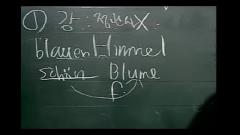 ① 강 : 정관사X
blauen Himmel
schön Blume
f.